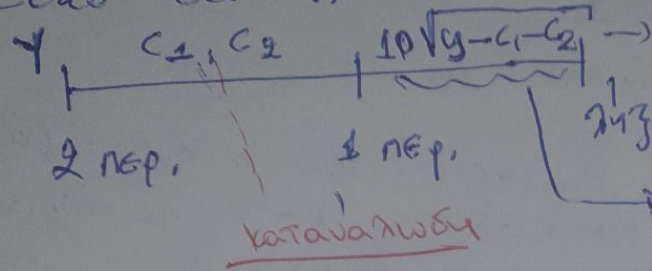 Y C1, C2 10√y-c1-c2 →
2 περ. 1 περ.
κατανάλωση